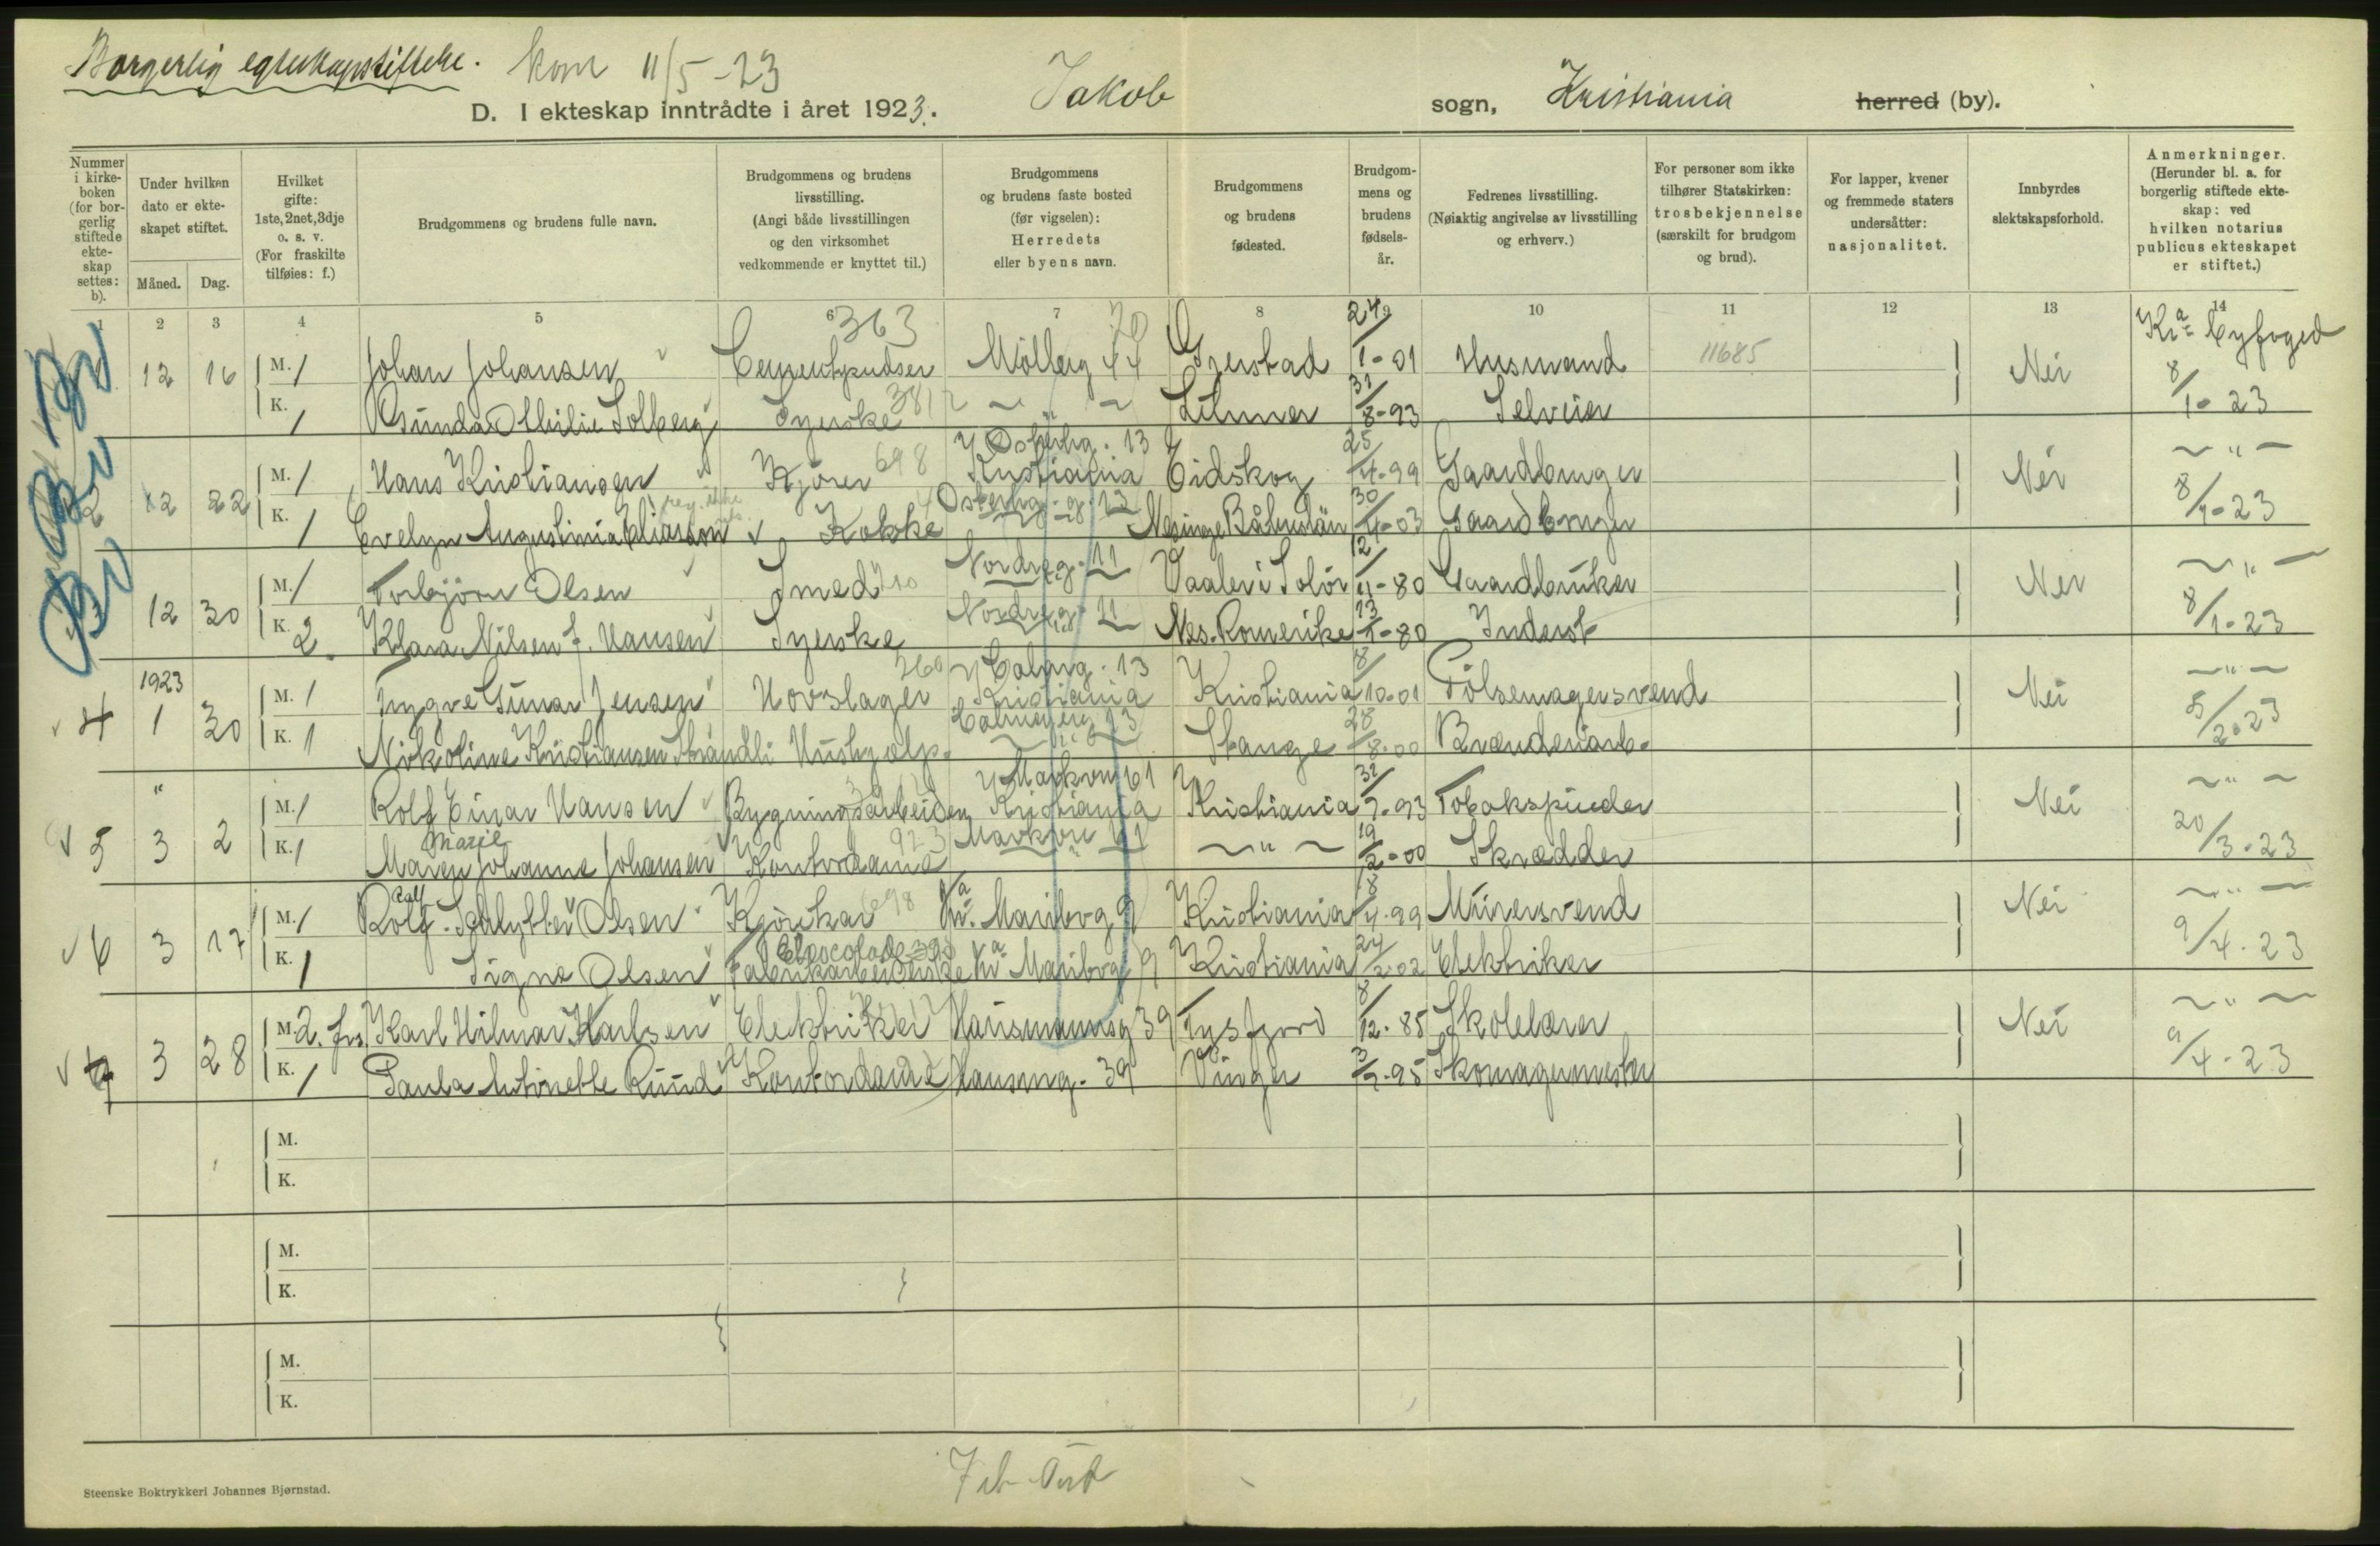 Borgerlig egteskapsstiftelse. kom 11/5-23
D. I ekteskap inntrådte i året 1923. Jakob sogn, Kristiania herred (by).
Nummer i kirke-boken (for bor-gerlig stiftede ekte-skap settes: b).
Under hvilken dato er ekte-skapet stiftet.
Måned. Dag.
Hvilket gifte: 1ste, 2net, 3dje o. s. v. (For fraskilte tilføies: f.)
Brudgommens og brudens fulle navn.
Brudgommens og brudens livsstilling. (Angi både livsstillingen og den virksomhet vedkommende er knyttet til.)
Brudgommens og brudens faste bosted (før vigselen): Herredets eller byens navn.
Brudgommens og brudens fødested.
Brudgom-mens og brudens fødsels-år.
Fedrenes livsstilling. (Nøiaktig angivelse av livsstilling og erhverv.)
For personer som ikke tilhører Statskirken: trosbekjennelse (særskilt for brudgom og brud).
For lapper, kvener og fremmede staters undersåtter: nasjonalitet.
Innbyrdes slektskapsforhold.
Anmerkninger. (Herunder bl. a. for borgerlig stiftede ekte-skap: ved hvilken notarius publicus ekteskapet er stiftet.)
1 2 3 4 5 6 7 8 9 10 11 12 13 14
363 70 24 Kra Byfoged
12 16 M. 1 Johan Johansen Cementpudser Møllerg 44 Gjerstad 1-01 Husmand 11685 Nei 8/1-23
K. 1 Gunda Othilie Solberg Syerske 381 — " — 31/8-93 Selveier
Østerhg. 13
2 12 22 M. 1 Hans Kristiansen Kjører 698 Kristiania Eidskog 25/4-99 Gaardbruger Nei — " — 8/1-23
K. 1 Evelyn Augustinia Eliasson Kokke Østerhg. 13 Båhuslän 30/4-03 Gaardbruger
12 30 M. 1 Torbjörn Olsen Smed Nordreg. 11 Vaaler i Solör 12/4-80 Gaardbruker Nei — " — 8/1-23
K. 2. Klara Nilsen f. Hansen Syerske Nordreg. 11 Nes. Romerike 13/1-80 Inderst
1923 260 Calmg. 13
4 1 30 M. 1 Yngve Gunar Jensen Hovslager Kristiania Kristiania 8/10-01 Pölsemagersvend Nei — " — 5/2-23
K. 1 Nikoline Kristiansen Strandli Hushjælp. Calmeyerg 13 Stange 28/8-00 Brænderiarb.
" Markvn 61
5 3 2 M. 1 Rolf Einar Hansen Bygningsarbeider Kristiania Kristiania 31/7-93 Tobakspinder Nei — " — 20/3-23
Marie 923
K. 1 Maren Johanne Johansen Kontordame Markvn 61 — " — 19/2-00 Skrædder
6 3 17 M. 1 Rolf Schlytter Olsen Kjörekar 698 Maribog 9 Kristiania 8/4-99 Mürersvend Nei — " — 9/4-23
Chocolade
K. 1 Signe Olsen Fabrikarbeiderske Maribog 9 Kristiania 24/2-02 Elektriker
7 3 28 M. 2. frs. Karl Hilmar Karlsen Elektriker Hausmannsg 39 Tysfjord 8/12-85 Skolelærer Nei — " — 9/4-23
K. 1 Paula Antonette Ruud Kontordame Hausmg. 39 Vinger 3/7-95 Skomagermester
M.
K.
M.
K.
M.
K.
Steenske Boktrykkeri Johannes Bjørnstad.